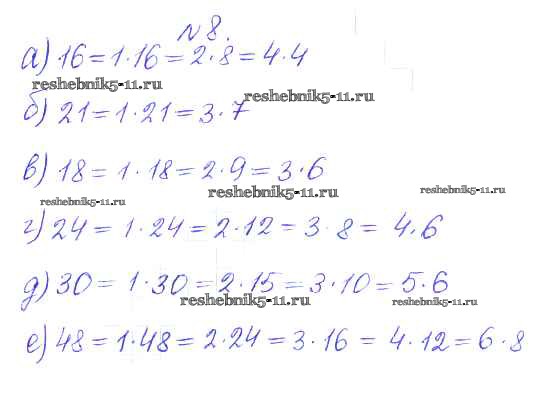 №8.
а) 16 = 1·16 = 2·8 = 4·4
reshebnik5-11.ru
reshebnik5-11.ru
б) 21 = 1·21 = 3·7
в) 18 = 1·18 = 2·9 = 3·6
reshebnik5-11.ru
reshebnik5-11.ru
reshebnik5-11.ru
г) 24 = 1·24 = 2·12 = 3·8 = 4·6
д) 30 = 1·30 = 2·15 = 3·10 = 5·6
reshebnik5-11.ru
reshebnik5-11.ru
е) 48 = 1·48 = 2·24 = 3·16 = 4·12 = 6·8